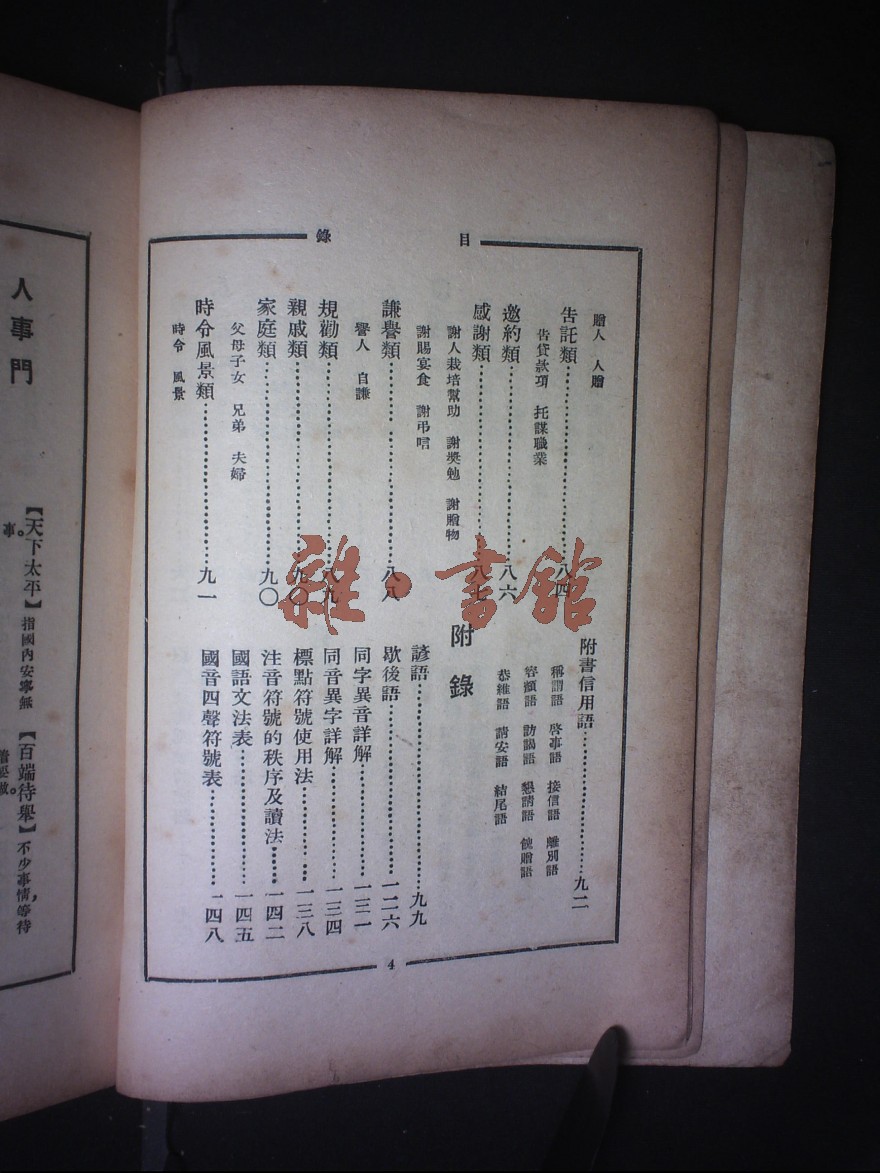 目錄
贈人　人贈
告託類……八四
告貸款項　托謀職業
邀約類……八六
感謝類……八七
謝人栽培幫助　謝獎勉　謝贈物
謝賜宴食　謝弔唁
謙譽類……八八
譽人　自謙
規勸類……八九
親戚類……九〇
家庭類……九〇
父母子女　兄弟　夫婦
時令風景類……九一
時令　風景
附書信用語……九二
稱謂語　啓事語　接信語　離別語
容顏語　訪謁語　懇請語　餽贈語
恭維語　請安語　結尾語
附錄
諺語……九九
歇後語……一二六
同字異音詳解……一三一
同音異字詳解……一三四
標點符號使用法……一三八
注音符號的秩序及讀法……一四二
國語文法表……一四五
國音四聲符號表……一四八
4
人事門
【天下太平】指國內安寧無
事。
【百端待舉】不少事情，等待
雜·書館